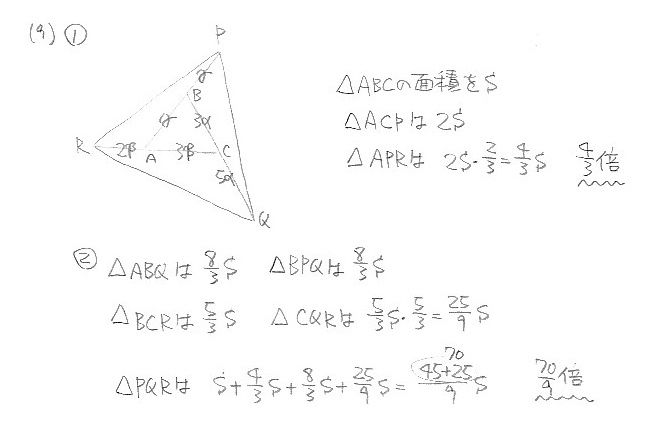 (9) ①
P
B
R
A
C
Q
2β
3β
3α
5α
△ABCの面積をS
△ACPは 2S
△APRは 2S・2/3=4/3S 4/3倍
② △ABQは 8/3S △BPQは 8/3S
△BCRは 5/3S △CQRは 5/3S・5/3=25/9S
70
△PQRは S+4/3S+8/3S+25/9S=45+25/9S 70/9倍